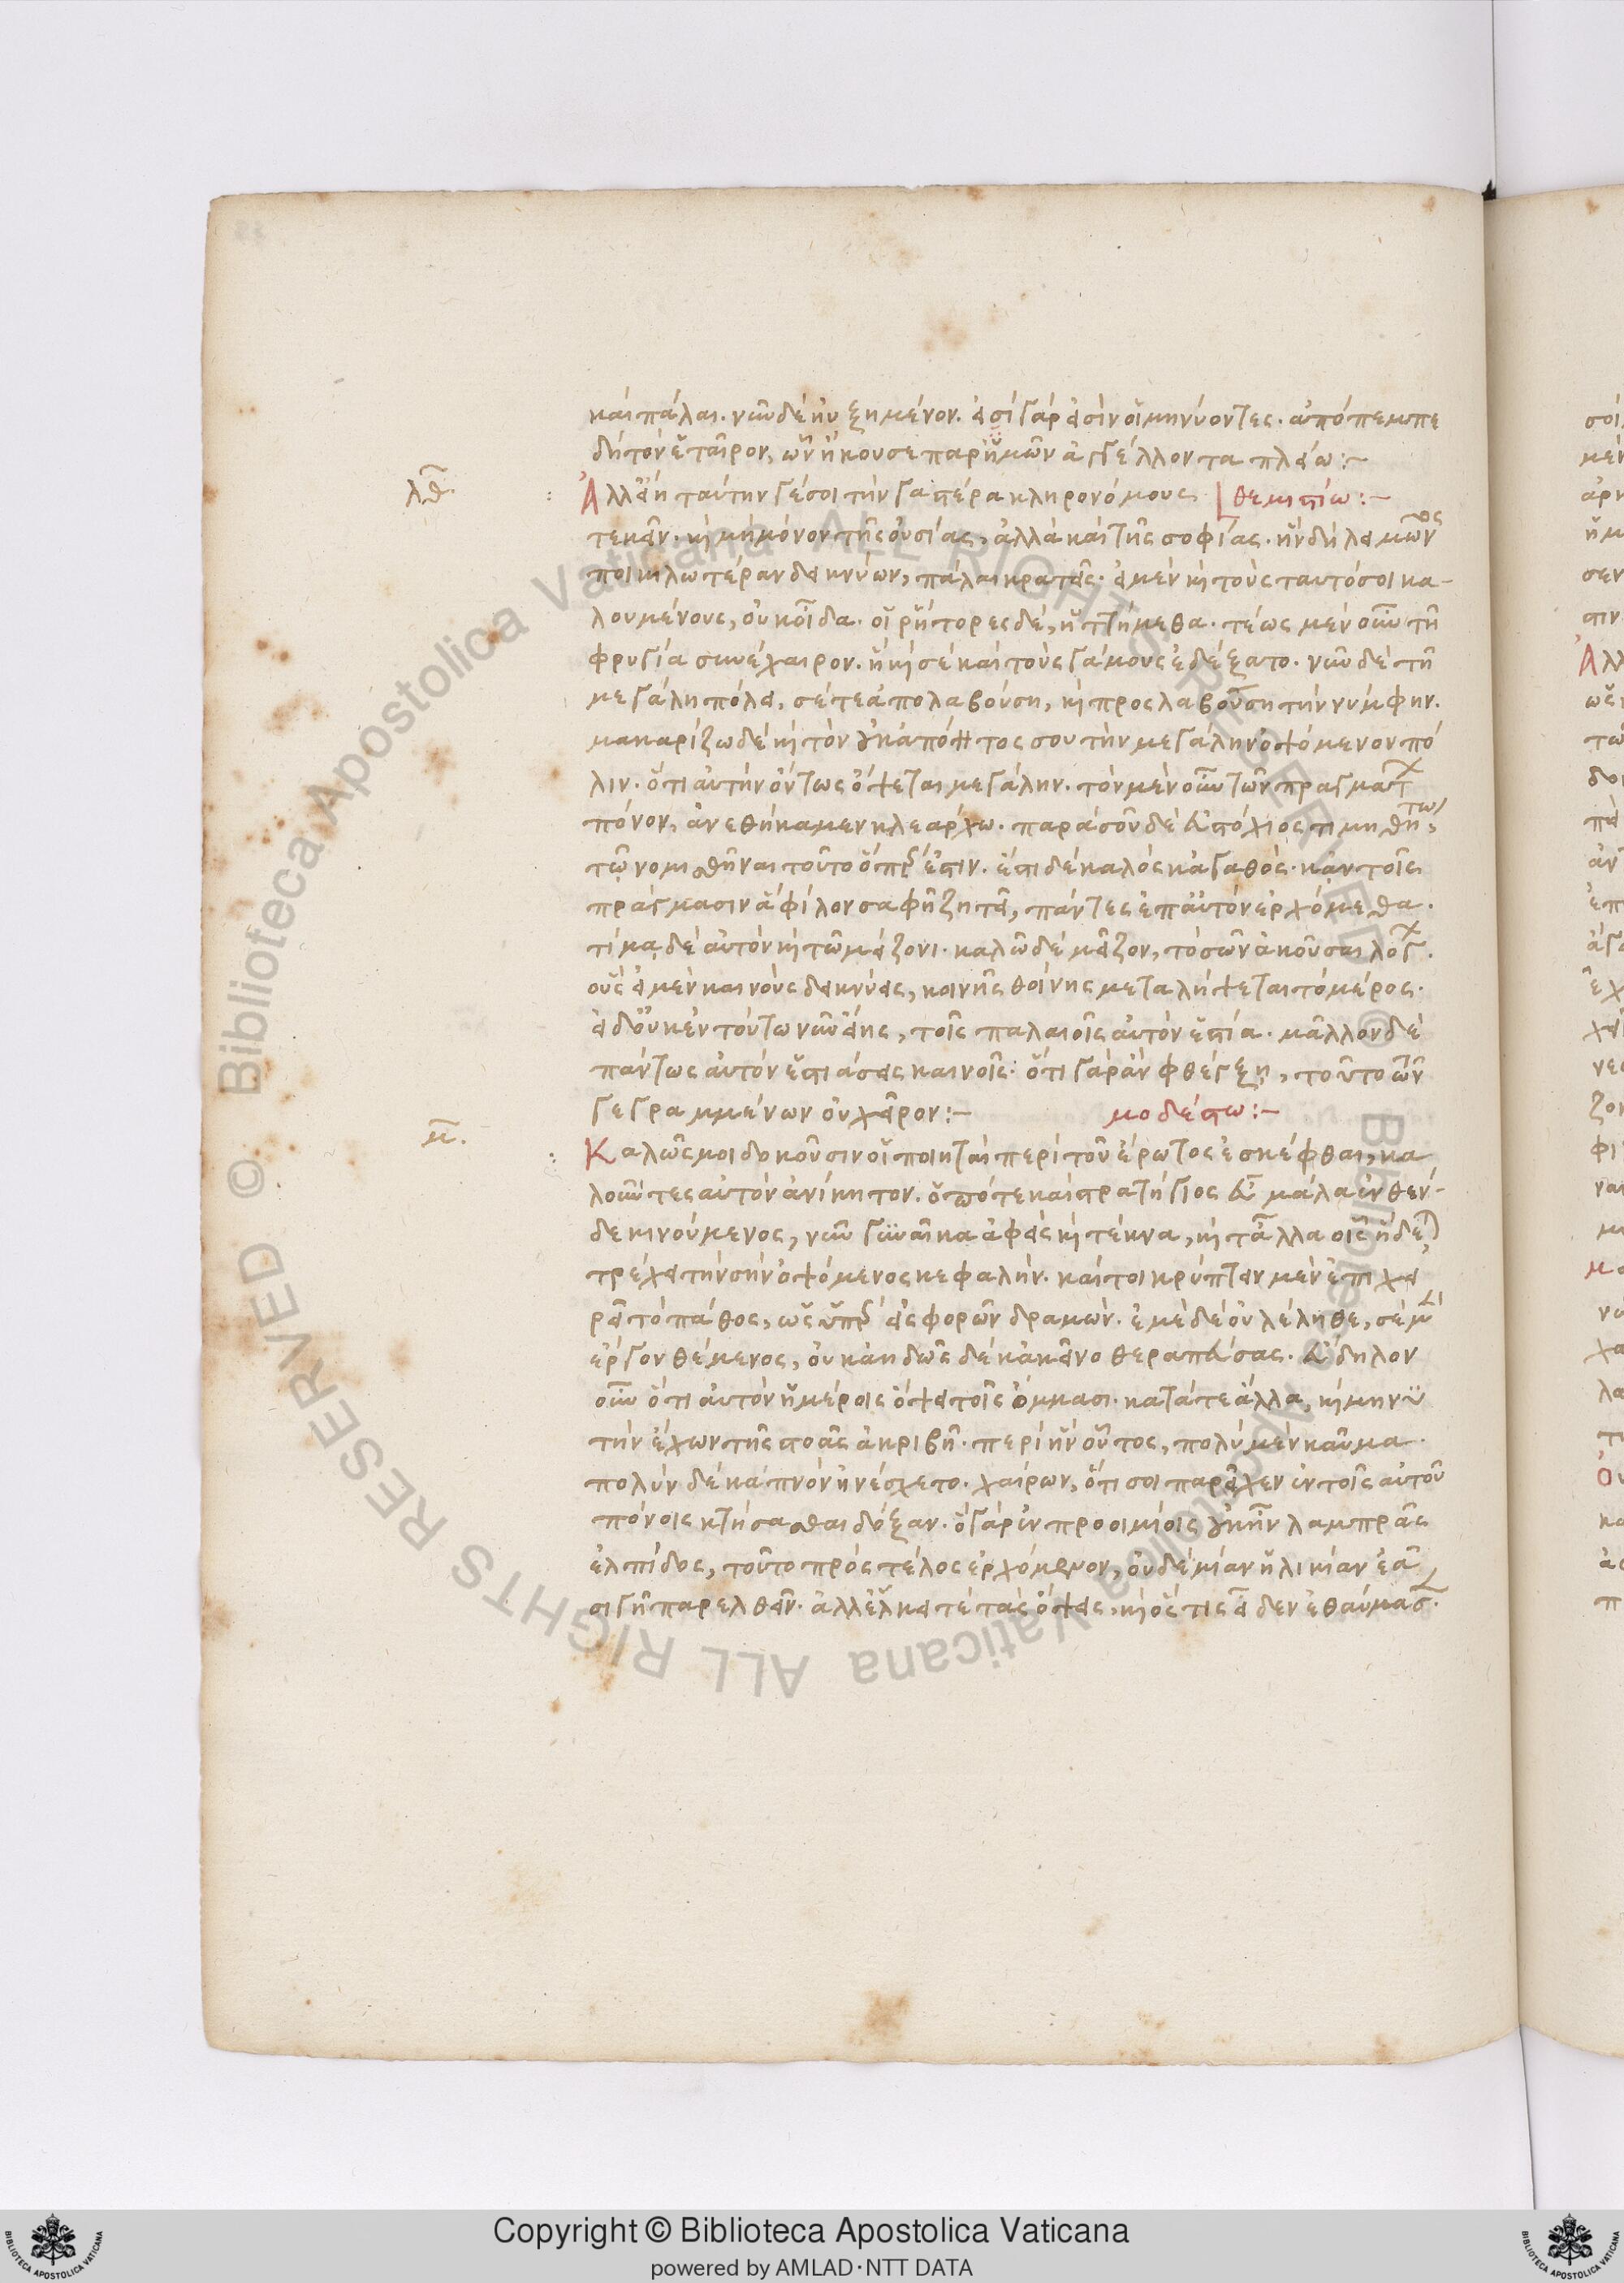 καὶ πάλαι. νῦν δὲ ηὐξημένον. εἰσὶ γάρ εἰσιν οἱ μηνύοντες. ἀπόπεμπε
δὴ τὸν ἑταῖρον, ὧν ἤκουσε παρ' ἡμῶν ἀγγέλλοντα πλείω :-
λθ. Ἀλλ' εἴη ταύτην γέ σοι τὴν γαστέρα κληρονόμους θεμιστίω :-
τεκεῖν. κ μὴ μόνον τῆς οὐσίας, ἀλλὰ καὶ τῆς σοφίας. ἣν δὴ λειμῶνος
ποικιλωτέραν δεικνύων, πάλαι κρατεῖς. εἰ μὲν κ τοὺς ταυτό σοι κα-
λουμένους, οὐκ οἶδα. οἱ ῥήτορες δέ, ἡττήμεθα. τέως μὲν οὖν τῆ
φρυγία συνέχαιρον. ἣ κ σὲ καὶ τοὺς γάμους ἐδέξατο. νῦν δὲ τῆ
μεγάλη πόλει, σέ τε ἀπολαβούση, κ προσλαβούση τὴν νύμφην.
μακαρίζω δὲ κ τὸν ἐκ τοσου τὴν μεγάλην ὀψόμενον πό
λιν. ὅτι αὐτὴν ὄντως ὄψεται μεγάλην. τὸν μὲν οὖν τῶν πραγμάτ
πόνον, ἀνεθήκαμεν κλεάρχω. παρὰ σοῦ δὲ εὐστόχιος τιμηθήτω,
τῶ νομισθῆναι τοῦτο ὅπερ ἐστιν. ἔστι δὲ καλὸς κἀγαθός. κἂν τοῖς
πράγμασιν ἃ φίλον σαφῆ ζητεῖ, πάντες ἐπ' αὐτὸν ἐρχόμεθα.
τίμα δὲ αὐτὸν κ τῶ μείζονι. καλῶ δὲ μεῖζον, τὸ σῶν ἀκοῦσαι λόγ.
οὓς εἰ μὲν καινοὺς δεικνύεις, κοινῆς θοίνης μεταλήψεται τὸ μέρος.
εἰ δ' οὐκ ἐν τούτω νῦν εἴης, τοῖς παλαιοῖς αὐτὸν ἑστία. μᾶλλον δὲ
πάντως αὐτὸν ἑστιάσεις καινοῖς. ὅτι γὰρ ἂν φθέγξη, τοῦτο τῶν
γεγραμμένων οὐ χεῖρον :- μοδέστω :-
μ. Καλῶς μοι δοκοῦσιν οἱ ποιηταὶ περὶ τοῦ ἔρωτος ἐσκέφθαι, κα
λοῦντες αὐτὸν ἀνίκητον. ὁπότε καὶ στρατήγιος εὖ μάλα ἐνθέν-
δε κινούμενος, νῦν γυναῖκα ἀφεὶς κ τέκνα, κ τἄλλα οἷς ἥδε
τρέχει τὴν σὴν ὀψόμενος κεφαλήν. καίτοι κρύπτειν μὲν ἐπιχει
ρεῖ τὸ πάθος, ὡς ὑπὲρ εἰσφορῶν δραμών. ἐμὲ δὲ οὐ λέληθε, σὲ μ
ἔργον θέμενος, οὐκ ἀηδῶς δὲ κἀκεῖνο θεραπεύσας. εὔδηλον
οὖν ὅτι αὐτὸν ἡμέροις ὄψει τοῖς ὄμμασι. κατά τε ἄλλα, κ μὴν
τὴν ἔχων τῆς στοᾶς ἀκριβῆ. περὶ ἣν οὗτος, πολὺ μὲν καῦμα.
πολὺν δὲ καπνὸν ἠνέσχετο. χαίρων, ὅτι σοι παρεῖχεν ἐν τοῖς αὐτοῦ
πόνοις κτήσασθαι δόξαν. ὃ γὰρ ἐν προοιμίοις ἐκεῖν λαμπρᾶς
ἐλπίδος, τοῦτο πρὸς τέλος ἐρχόμενον, οὐδεμίαν ἡλικίαν ἐᾶ
σιγῆ παρελθεῖν. ἀλλ' ἕλκει τέ τὰς ὄψεις, κ ὅστις εἶδεν ἐθαύμασ.
Copyright © Biblioteca Apostolica Vaticana
powered by AMLAD·NTT DATA